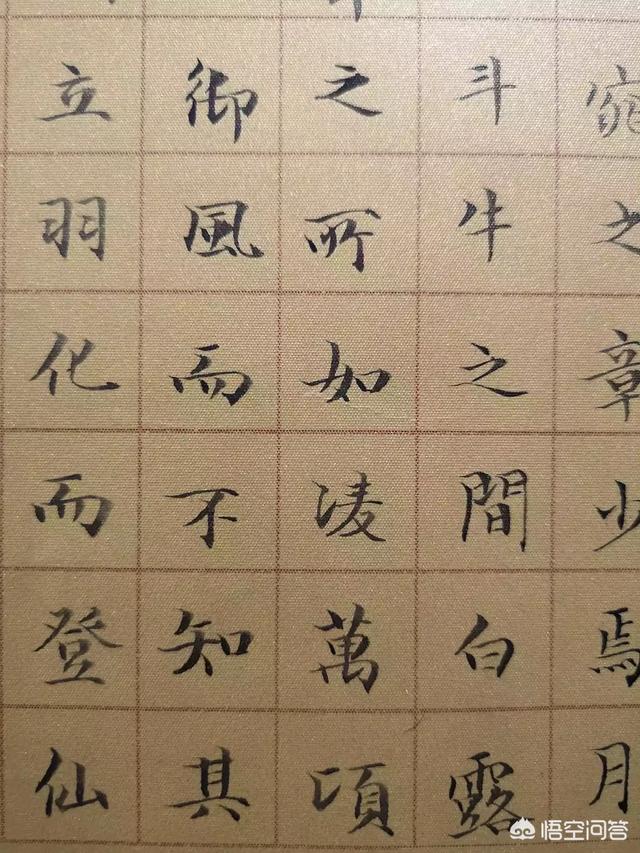 窕之章少焉月
斗牛之間白露
之所如凌萬頃
御風而不知其
立羽化而登仙
悟空问答